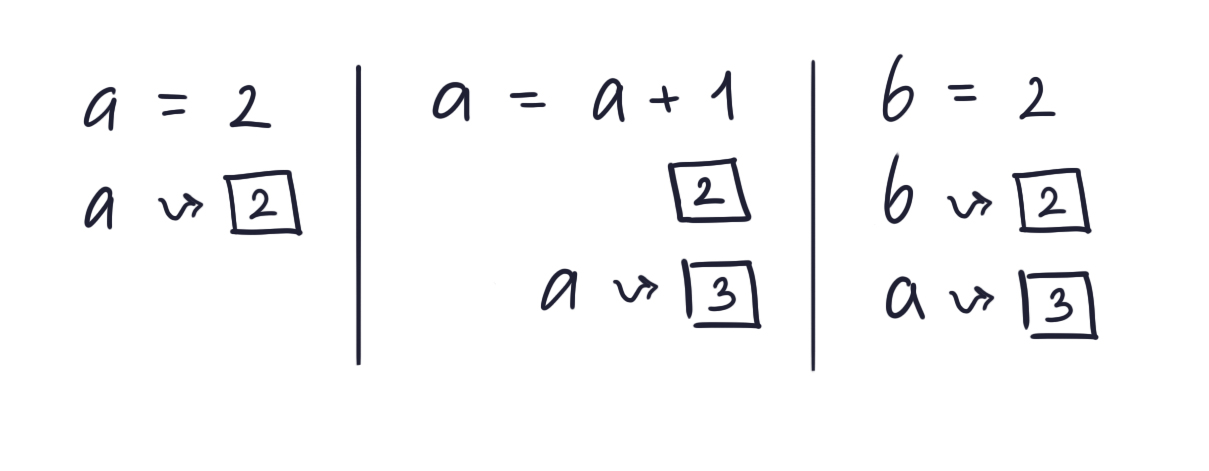 a = 2
a ⇝ 2
a = a + 1
2
a ⇝ 3
b = 2
b ⇝ 2
a ⇝ 3